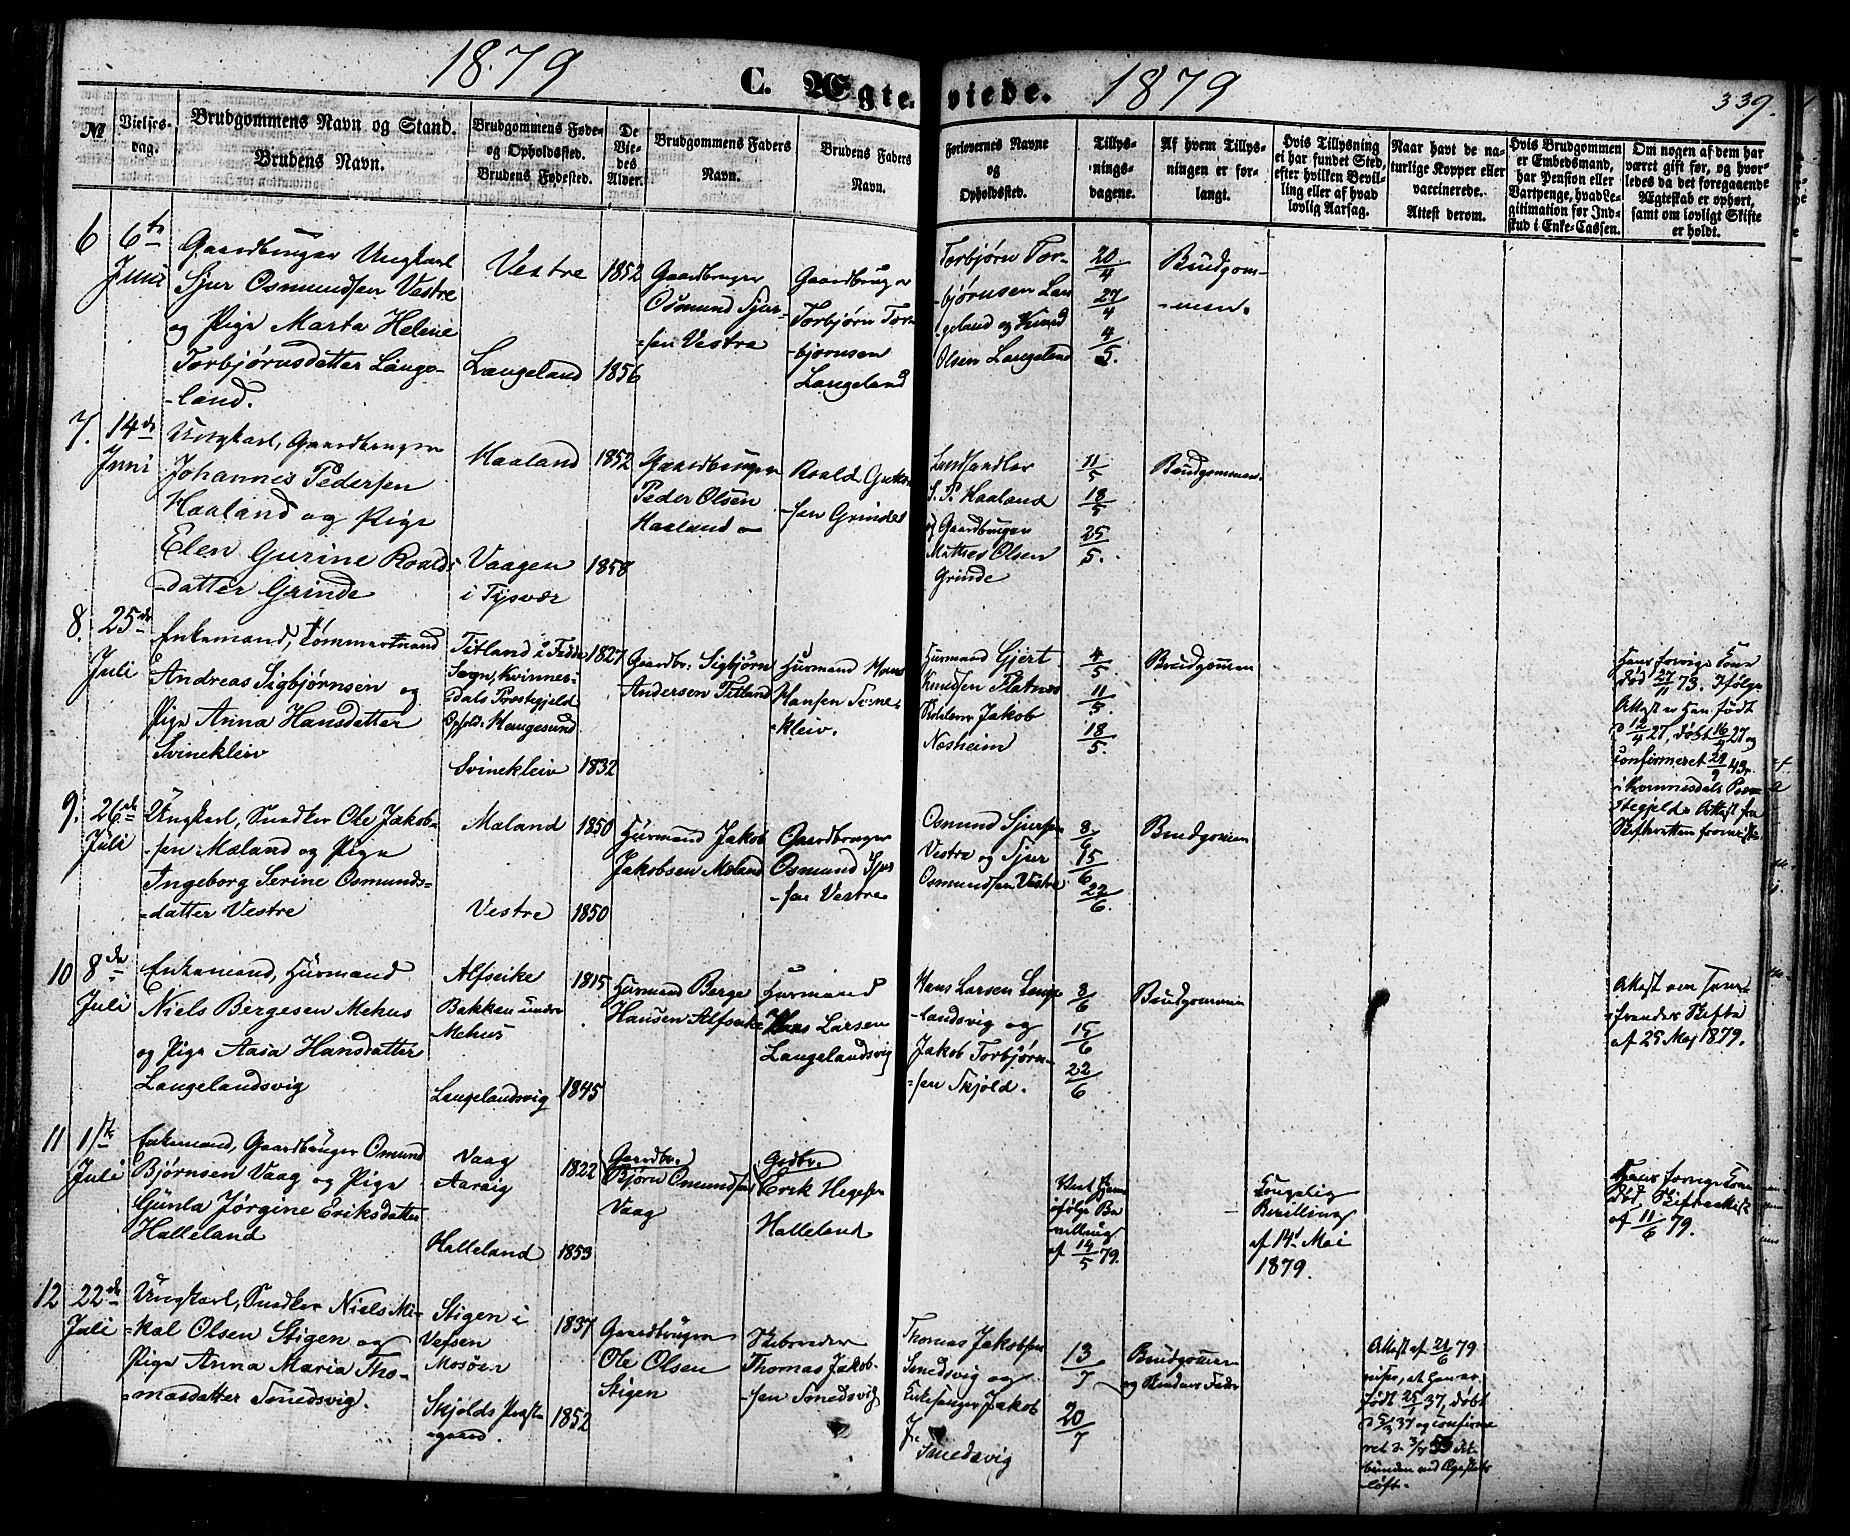 1879
C. Ægteviede.
1879
339.
№
Vielses-
dag.
Brudgommens Navn og Stand.
Brudens Navn.
Brudgommens Føde-
og Opholdssted.
Brudens Fødested.
De
Vie-
des
Alder.
Brudgommens Faders
Navn.
Brudens Faders
Navn.
Forlovernes Navne
og
Opholdssted.
Tillys-
nings-
dagene.
Af hvem Tillys-
ningen er for-
langt.
Hvis Tillysning
ei har fundet Sted,
efter hvilken Bevil-
ling eller af hvad
lovlig Aarsag.
Naar havt de na-
turlige Kopper eller
vaccinerede.
Attest derom.
Hvis Brudgommen
er Embedsmand,
har Pension eller
Vartpenge, hvad Le-
gitimation for Ind-
skud i Enke-Cassen.
Om nogen af dem har
været gift før, og hvor-
ledes da det foregaaende
Ægteskab er ophørt,
samt om lovligt Skifte
er holdt.
6
6te
Juni
Gaardbruger Ungkarl
Sjur Osmundsen Vestre
og Pige Marta Helene
Torbjørnsdatter Lange-
-land.
Vestre
Langeland
1852
1856
Gaardbruger
Osmund Sjur-
-sen Vestre
Gaardbruger
Torbjørn Tor-
-bjørnsen
Langeland
Torbjørn Tor-
-bjørnsen Lan
-geland og Knud
Olsen Langeland
20/4
27/4
4/5.
Brudgom-
-men.
7.
14de
Juni
Ungkarl, Gaardbruger
Johannes Pedersen
Haaland og Pige
Elen Gurine Roalds-
-datter Grinde
Haaland
Vaagen
i Tysvær
1852
1858
Gaardbruger
Peder Olsen
Haaland
Roald
-sen Grinde
Landhandler
S. P. Haaland
og Gaardbruger
Mathes Olsen
Grinde
11/5
18/5
25/5.
Brudgommen.
8.
25de
Juli
Enkemand, Tømmermand
Andreas Sigbjørnsen og
Pige Anna Hansdatter
Svinekleiv
Titland i Fedde
Sogn, Kvinnes-
dals Præstegjeld
Opholds. Haugesund
Svinekleiv
1827
1832
Gaardbr: Sigbjørn
Andersen Titland
Husmand Hans
Hansen Svine-
-kleiv.
Husmand Gjert
Knudsen Platnes
Jakob
Næsheim
4/5.
11/5.
18/5.
Brudgommen
Hans forrige Kone
død 27/11 73. Ifølge
Attest er han født
d 12/4 27, døbt 16/4 27 og
confirmeret 24/9 43
i Kvinnesdals Præ-
stegjeld. Attest fra
Skifteretten
9.
26de
Juli
Ungkarl, Snedker Ole Jakob-
-sen Mæland og Pige
Ingeborg Serine Osmunds-
-datter Vestre
Mæland
Vestre
1850
1850
Husmand Jakob
Jakobsen Mæland
Gaardbruger
Osmund Sjur
-sen Vestre
Osmund Sjursen
Vestre og Sjur
Osmundsen Vestre
8/6
15/6
22/6.
Brudgommen
10
8de
Juli
Enkemand, Husmand
Niels Bergesen Mehus
og Pige Aasa Hansdatter
Langelandsvig
Alfseike
Bakken under
Mehus
Langelandsvig
1815
1845
Husmand Berge
Hansen Alfseike
Husmand
Hans Larsen
Langelandsvig
Hans Larsen Lange
-landsvig og
Jakob Torbjørn-
-sen Skjold.
8/6
15/6
22/6
Brudgommen
Attest om
Skifte
af 25 Maj 1879.
11
Juli
Enkemand, Gaardbruger Omund
Bjørnsen Vaag og Pige
Gunla Jørgine Eriksdatter
Halleland
Vaag
Aarvig
Halleland
1822
1853
Gaardbr.
Bjørn Omundsen
Vaag
Gdbr.
Erik Hegesen
Halleland
Viet hjemme
ifølge Be
villing
af 14/5 79.
Kongelig
Bevilling
af 14 Mai
1879.
Hans forrige Kone
død. Skifteattest
af 11/6 79.
12
22de
Juli
Ungkarl, Snedker Niels Mi-
-kal Olsen Stigen og
Pige Anna Maria Tho-
-masdatter Smedsvig.
Stigen i
Vefsen
Mosøen
Skjolds Præste
gaard.
1837
1852
Gaardbruger
Ole Olsen
Stigen
Skibsreder
Thomas Jakob-
-sen Smedsvig
Thomas Jakobsen
Smedsvig og
Kirkesanger Jakob
Smedsvig
13/7
20/7
Brudgommen
og Brudens Fader
Attest af 21/6 79
viser, at han er
født 25/1 37, døbt
d 5/3 37 og confirme
ret